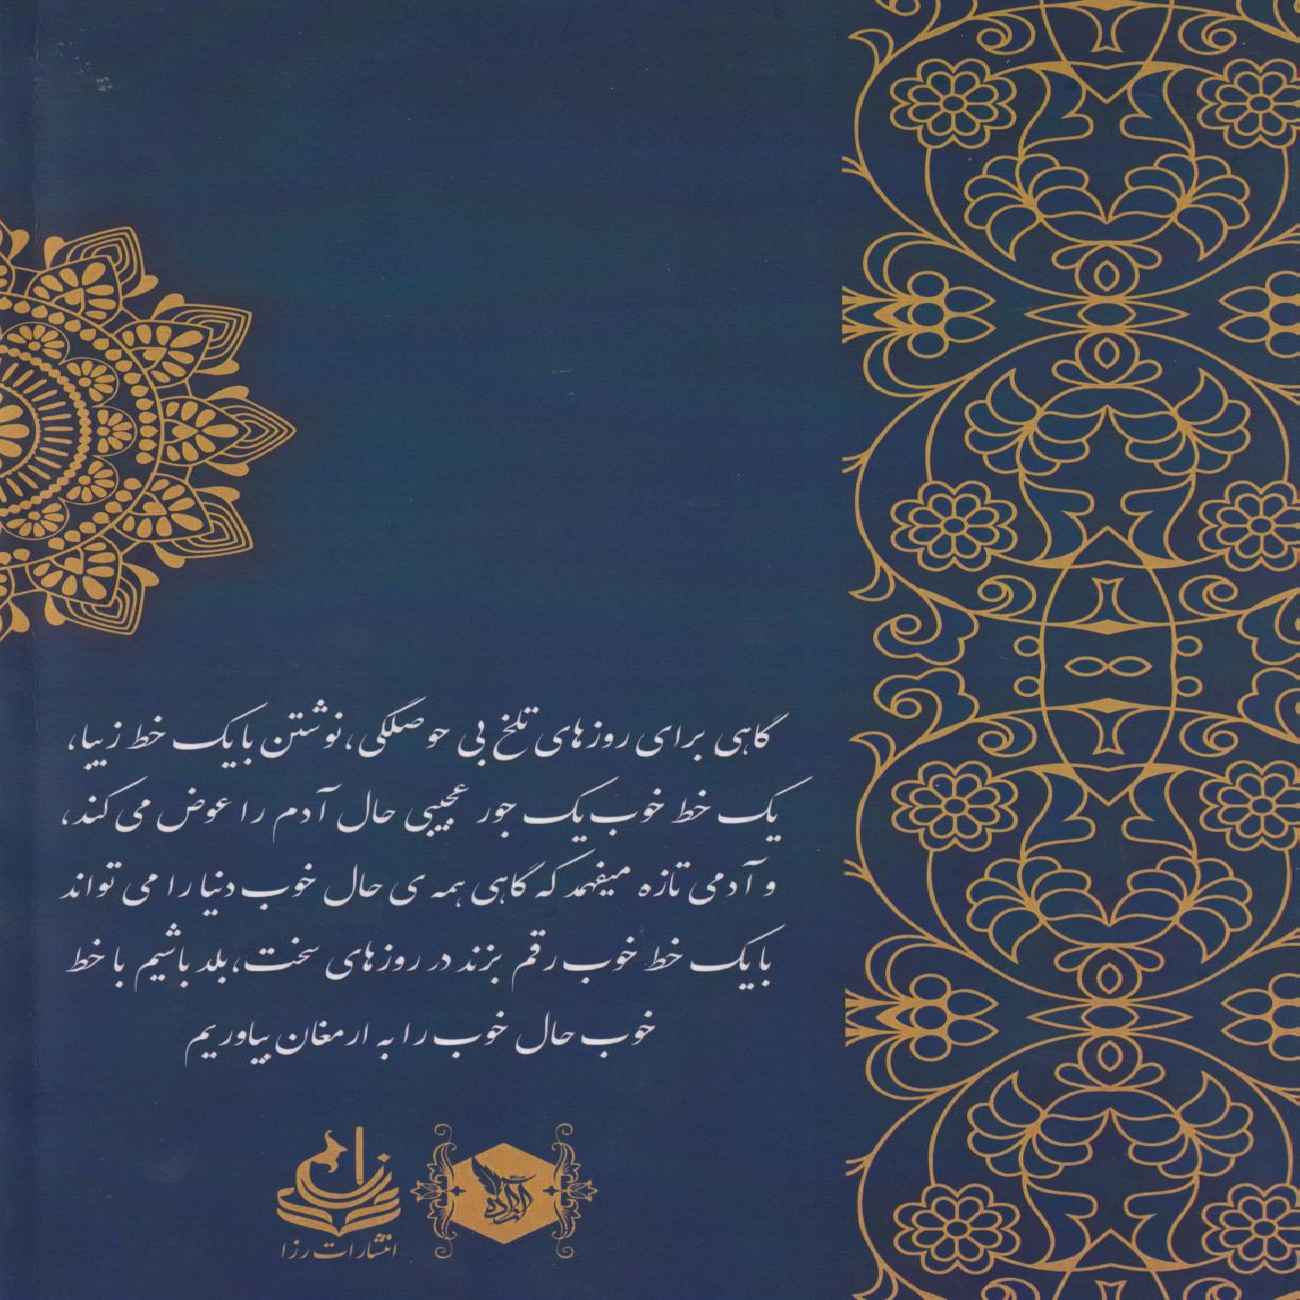 گاهی برای روزهای تلخ بی حوصلگی، نوشتن با یک خط زیبا،
یک خط خوب یک جور عجیبی حال آدم را عوض می کند،
و آدمی تازه میفهمد که گاهی همه ی حال خوب دنیا را می تواند
با یک خط خوب رقم بزند در روزهای سخت، بلد باشیم با خط
خوب حال خوب را به ارمغان بیاوریم
انتشارات رزا